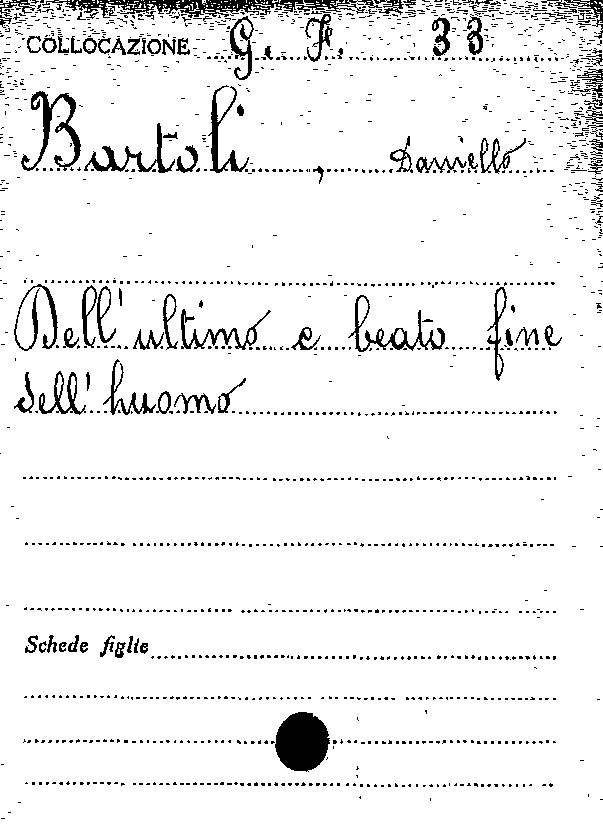 COLLOCAZIONE G. F. 33
Bartoli, Daniello
Dell'ultimo e beato fine
dell'huomo
Schede figlie